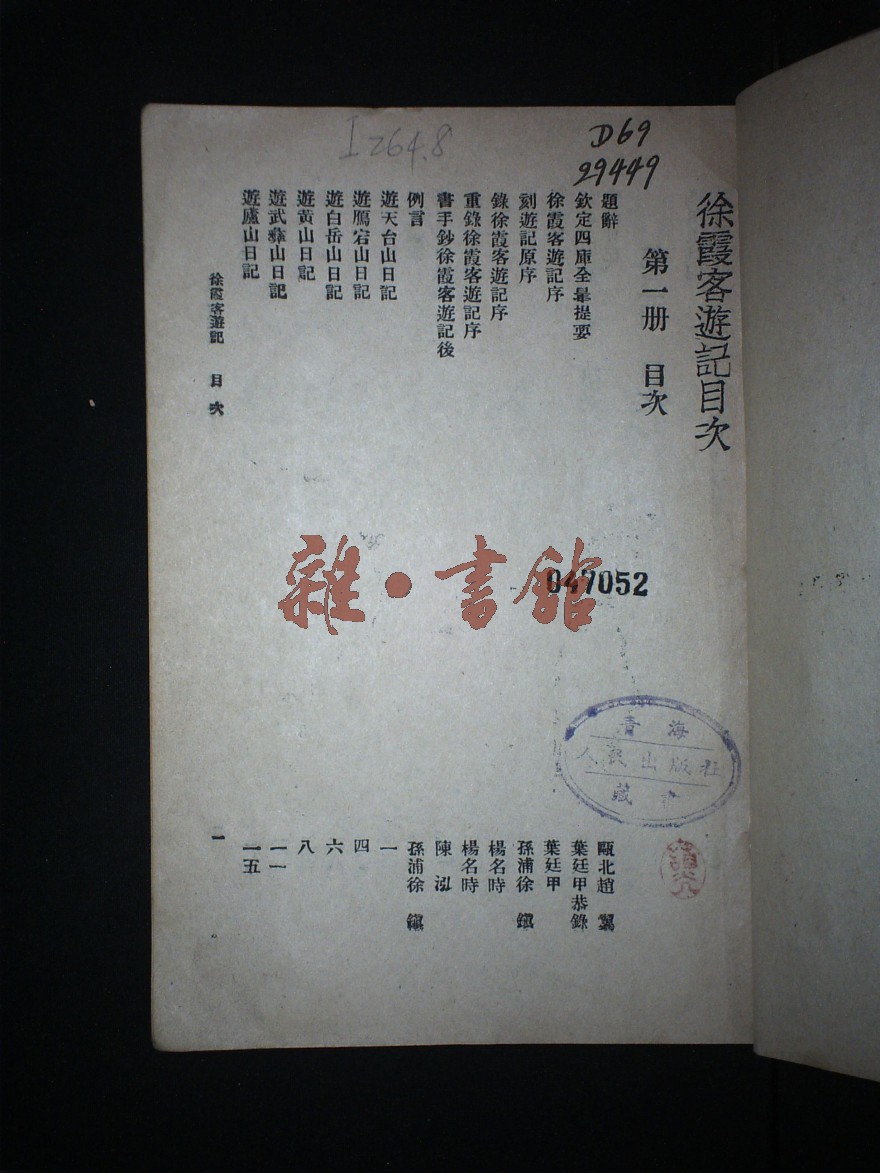 I264.8
D69
29449
徐霞客遊記目次
第一册 目次
題辭 甌北趙 翼
欽定四庫全書提要 葉廷甲恭錄
徐霞客遊記序 葉廷甲
刻遊記原序 孫浦徐 鎭
錄徐霞客遊記序 楊名時
重錄徐霞客遊記序 楊名時
書手鈔徐霞客遊記後 陳 泓
例言 孫浦徐 鎭
遊天台山日記 一
遊鴈宕山日記 四
遊白岳山日記 六
遊黃山日記 八
遊武彝山日記 一一
遊廬山日記 一五
徐霞客遊記 目次 一
雜·書館
047052
青海
人民出版社
藏